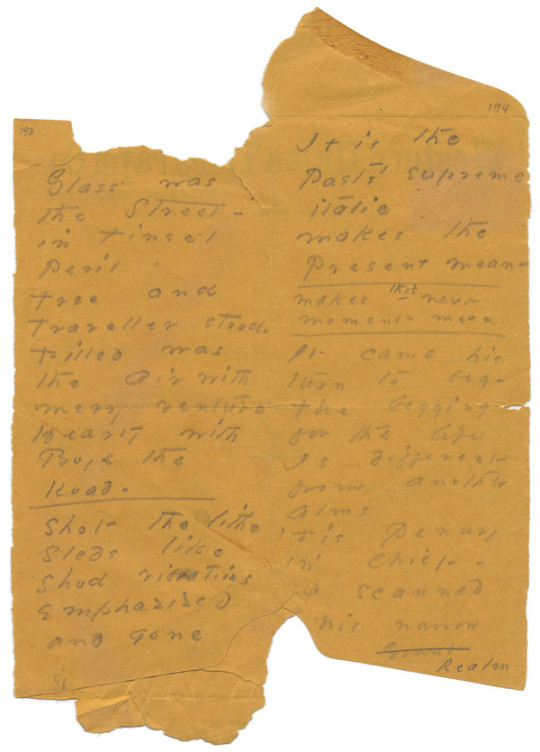 193
Glass was
the Street -
in tinsel
Peril
tree and
traveller stood.
filled was
the Air with
merry venture
Hearty with
Boys the
Road -
Shot the lithe
Sleds like
Shod vibrations
Emphasized
and gone
194
It is the
Past's supreme
italic
makes the
Present mean -
makes this next
moment mean
It came his
turn to beg -
The begging
for the life
Is different
from another
Alms
'tis Penury
in Chief -
I scanned
his narrow
Realm